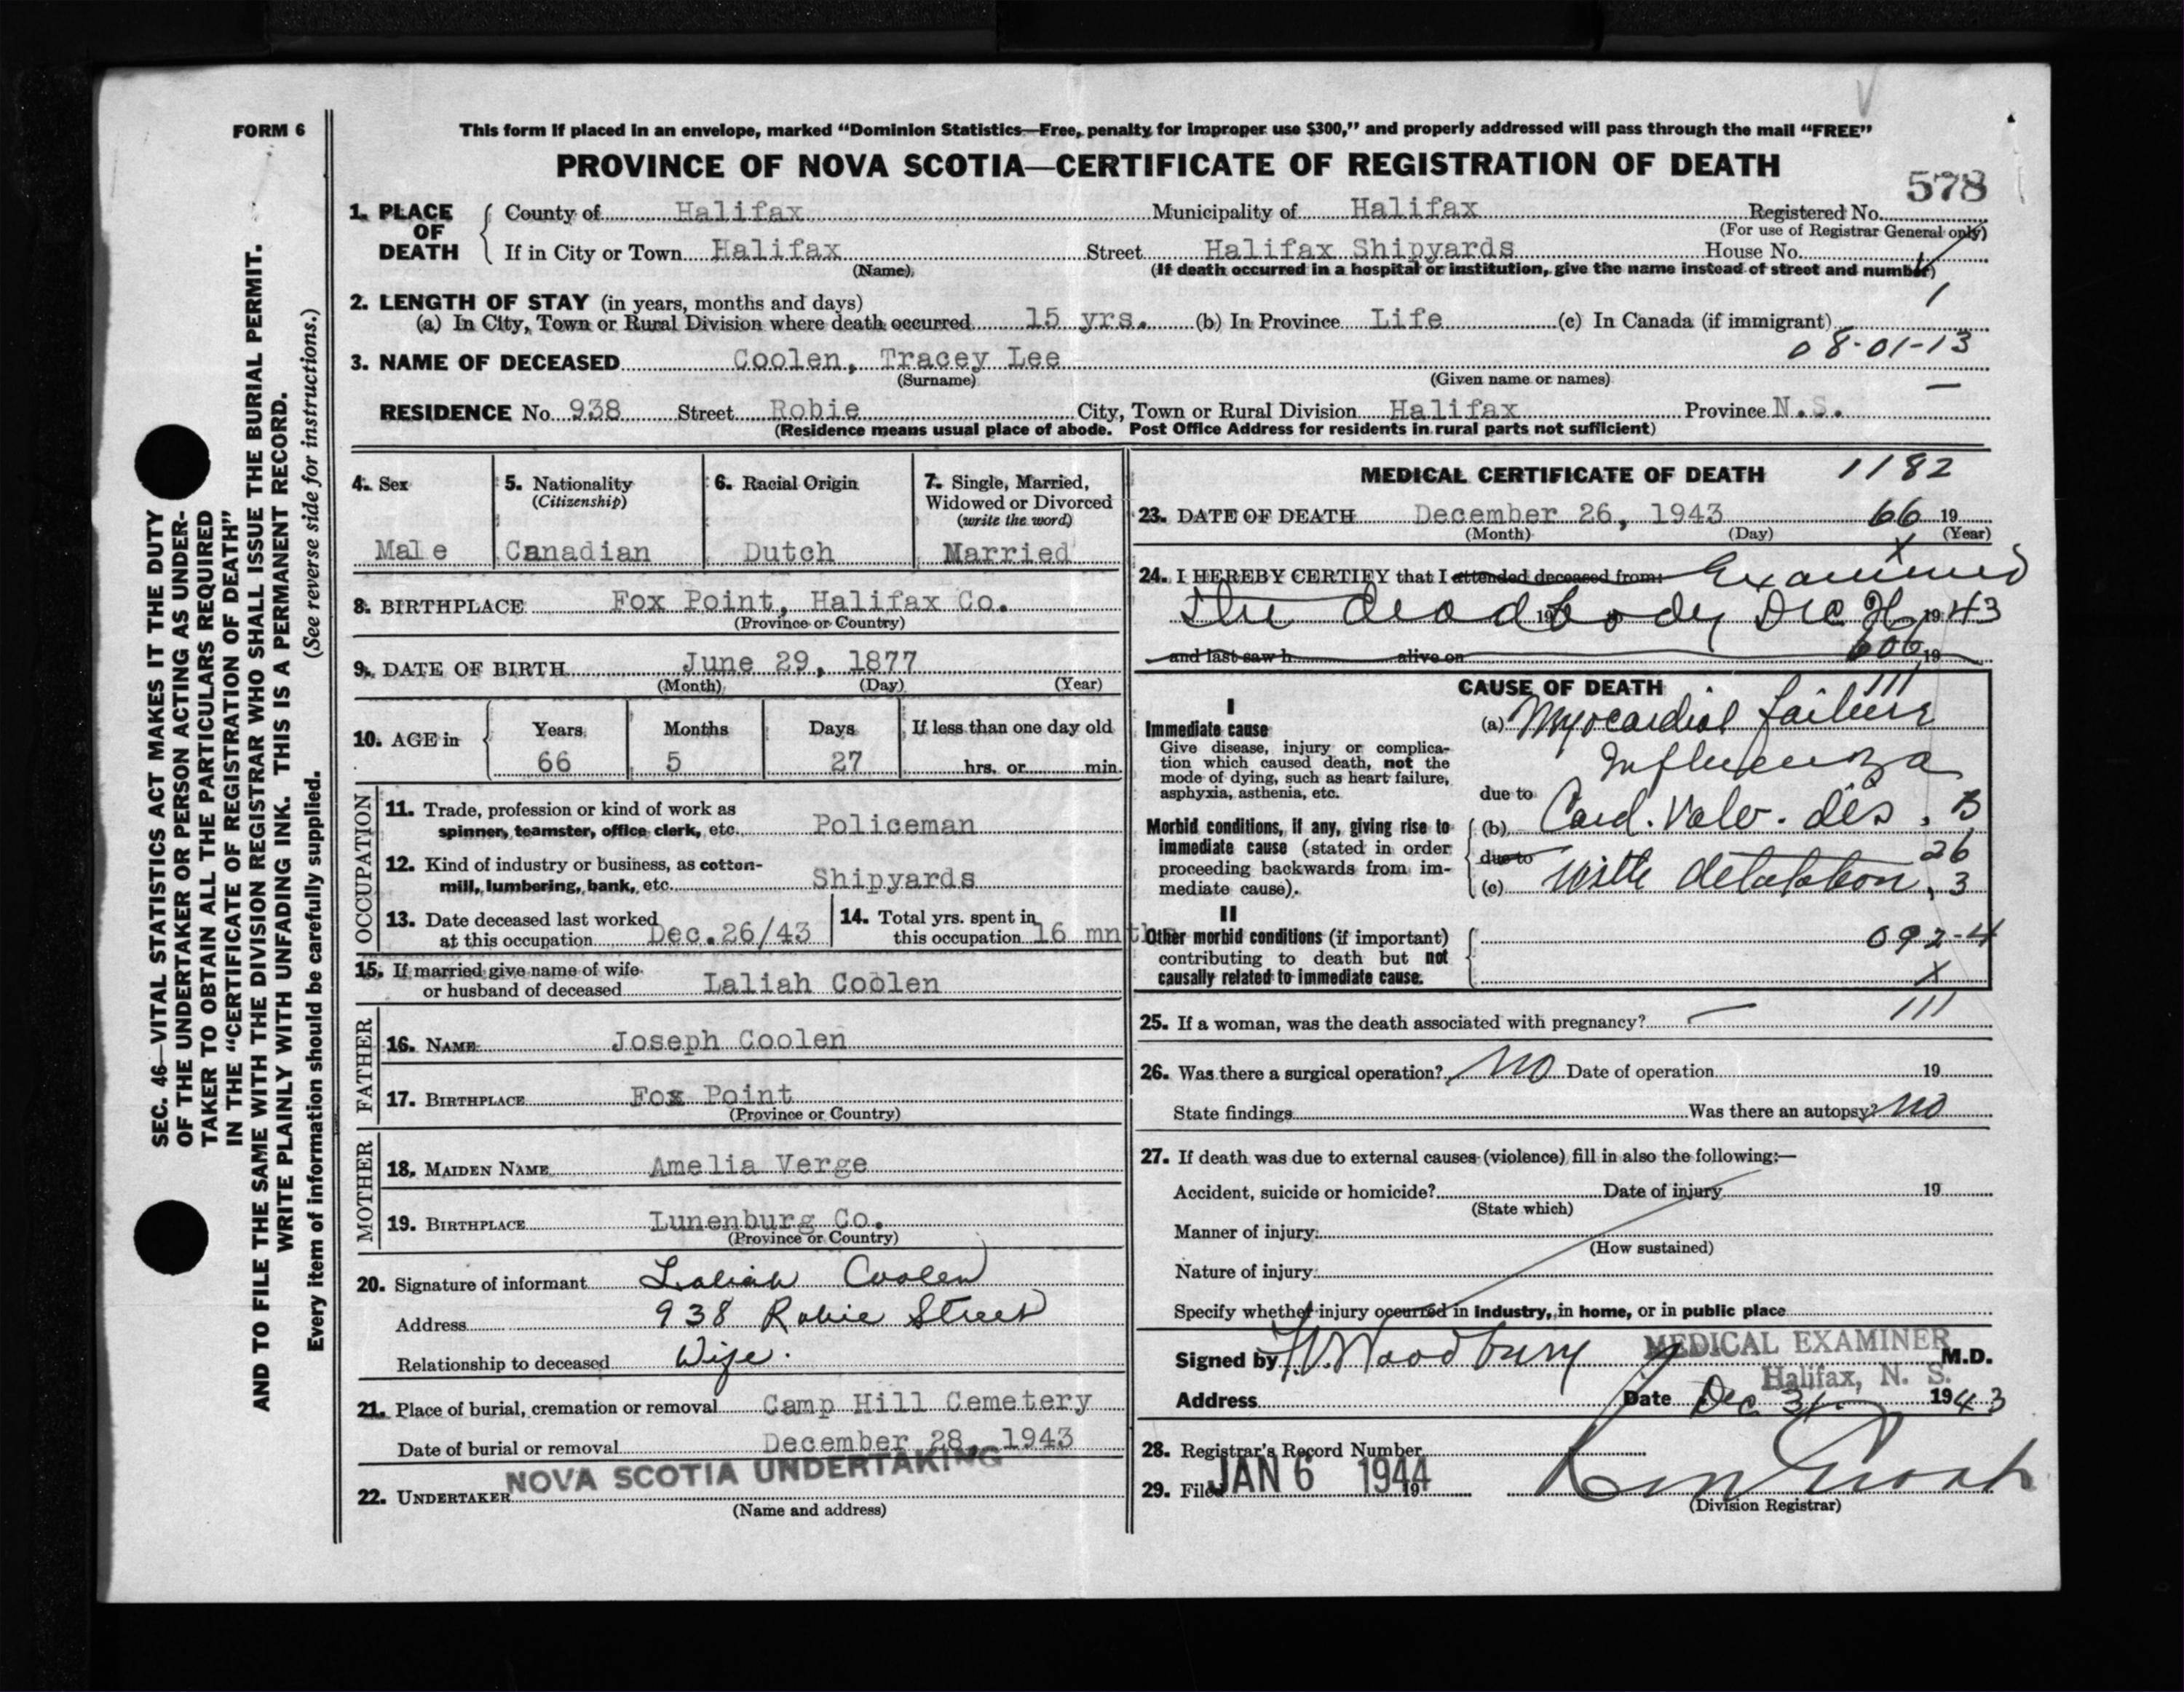 FORM 6
This form if placed in an envelope, marked “Dominion Statistics—Free, penalty for improper use $300,” and properly addressed will pass through the mail “FREE”
PROVINCE OF NOVA SCOTIA—CERTIFICATE OF REGISTRATION OF DEATH
578
1. PLACE OF DEATH
County of Halifax Municipality of Halifax Registered No.
(For use of Registrar General only)
If in City or Town Halifax Street Halifax Shipyards House No.
(Name) (If death occurred in a hospital or institution, give the name instead of street and number)
2. LENGTH OF STAY (in years, months and days)
(a) In City, Town or Rural Division where death occurred 15 yrs. (b) In Province Life (c) In Canada (if immigrant)
08-01-13
3. NAME OF DECEASED Coolen, Tracey Lee
(Surname) (Given name or names)
RESIDENCE No. 938 Street Robie City, Town or Rural Division Halifax Province N.S.
(Residence means usual place of abode. Post Office Address for residents in rural parts not sufficient)
4. Sex
Male
5. Nationality
(Citizenship)
Canadian
6. Racial Origin
Dutch
7. Single, Married,
Widowed or Divorced
(write the word)
Married
8. BIRTHPLACE Fox Point, Halifax Co.
(Province or Country)
9. DATE OF BIRTH June 29, 1877
(Month) (Day) (Year)
10. AGE in
Years Months Days If less than one day old
66 5 27 hrs. or min.
OCCUPATION
11. Trade, profession or kind of work as
spinner, teamster, office clerk, etc. Policeman
12. Kind of industry or business, as cotton-
mill, lumbering, bank, etc. Shipyards
13. Date deceased last worked
at this occupation Dec.26/43
14. Total yrs. spent in
this occupation 16 mnths
15. If married give name of wife
or husband of deceased Laliah Coolen
FATHER
16. NAME Joseph Coolen
17. BIRTHPLACE Fox Point
(Province or Country)
MOTHER
18. MAIDEN NAME Amelia Verge
19. BIRTHPLACE Lunenburg Co.
(Province or Country)
20. Signature of informant Laliah Coolen
Address 938 Robie Street
Relationship to deceased Wife.
21. Place of burial, cremation or removal Camp Hill Cemetery
Date of burial or removal December 28, 1943
22. UNDERTAKER NOVA SCOTIA UNDERTAKING
(Name and address)
MEDICAL CERTIFICATE OF DEATH 1182
23. DATE OF DEATH December 26, 1943 66 19
(Month) (Day) (Year)
24. I HEREBY CERTIFY that I attended deceased from: Examined
the dead body Dec 26 1943
and last saw h alive on 606 19
CAUSE OF DEATH
111
I
Immediate cause
Give disease, injury or complica-
tion which caused death, not the
mode of dying, such as heart failure,
asphyxia, asthenia, etc.
(a) Myocardial failure
Influenza
due to
Morbid conditions, if any, giving rise to
immediate cause (stated in order
proceeding backwards from im-
mediate cause).
(b) Card. Valv. dis. B
due to 26
(c) with dilatation, 3
II
Other morbid conditions (if important)
contributing to death but not
causally related to immediate cause.
092-4
X
111
25. If a woman, was the death associated with pregnancy? —
26. Was there a surgical operation? no Date of operation 19
State findings Was there an autopsy? no
27. If death was due to external causes (violence) fill in also the following:—
Accident, suicide or homicide? Date of injury 19
(State which)
Manner of injury:
(How sustained)
Nature of injury:
Specify whether injury occurred in industry, in home, or in public place
Signed by Woodbury MEDICAL EXAMINER M.D.
Halifax, N. S.
Address Date Dec 31. 1943
28. Registrar's Record Number
29. Filed JAN 6 1944 19
(Division Registrar)
SEC. 46—VITAL STATISTICS ACT MAKES IT THE DUTY
OF THE UNDERTAKER OR PERSON ACTING AS UNDER-
TAKER TO OBTAIN ALL THE PARTICULARS REQUIRED
IN THE “CERTIFICATE OF REGISTRATION OF DEATH”
AND TO FILE THE SAME WITH THE DIVISION REGISTRAR WHO SHALL ISSUE THE BURIAL PERMIT.
WRITE PLAINLY WITH UNFADING INK. THIS IS A PERMANENT RECORD.
Every item of information should be carefully supplied. (See reverse side for instructions.)